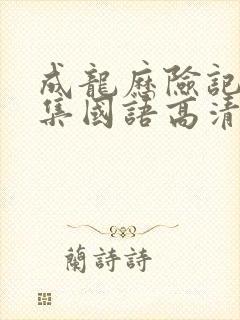 成龍歷險記
集國語高清
蘭詩詩